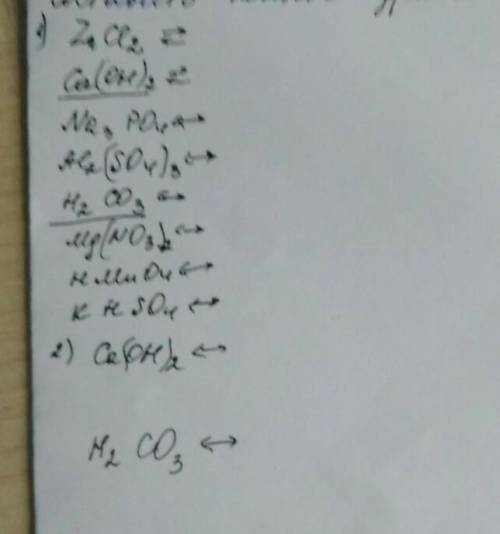 1) ZnCl₂ ⇄
Ca(OH)₂ ⇄
Na₃PO₄ ↔
Al₂(SO₄)₃ ↔
H₂CO₃ ↔
Mg(NO₃)₂ ↔
HMnO₄ ↔
KHSO₄ ↔
2) Ca(OH)₂ ↔
H₂CO₃ ↔